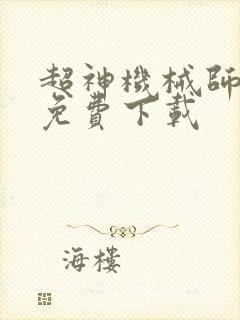 超神機械師
免費下載
海樓